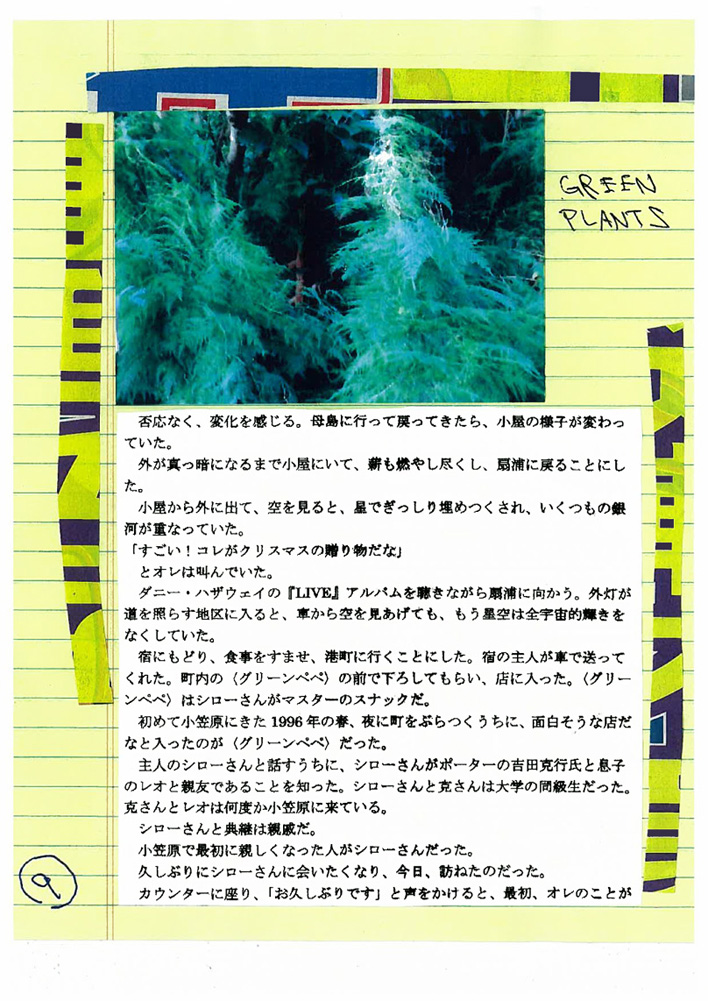 GREEN
PLANTS
否応なく、変化を感じる。母島に行って戻ってきたら、小屋の様子が変わっ
ていた。
外が真っ暗になるまで小屋にいて、薪も燃やし尽くし、扇浦に戻ることにし
た。
小屋から外に出て、空を見ると、星でぎっしり埋めつくされ、いくつもの銀
河が重なっていた。
「すごい！コレがクリスマスの贈り物だな」
とオレは叫んでいた。
ダニー・ハザウェイの『LIVE』アルバムを聴きながら扇浦に向かう。外灯が
道を照らす地区に入ると、車から空を見あげても、もう星空は全宇宙的輝きを
なくしていた。
宿にもどり、食事をすませ、港町に行くことにした。宿の主人が車で送って
くれた。町内の〈グリーンペペ〉の前で下ろしてもらい、店に入った。〈グリー
ンペペ〉はシローさんがマスターのスナックだ。
初めて小笠原にきた1996年の春、夜に町をぶらつくうちに、面白そうな店だ
なと入ったのが〈グリーンペペ〉だった。
主人のシローさんと話すうちに、シローさんがポーターの吉田克行氏と息子
のレオと親友であることを知った。シローさんと克さんは大学の同級生だった。
克さんとレオは何度か小笠原に来ている。
シローさんと典継は親戚だ。
小笠原で最初に親しくなった人がシローさんだった。
久しぶりにシローさんに会いたくなり、今日、訪ねたのだった。
カウンターに座り、「お久しぶりです」と声をかけると、最初、オレのことが
9